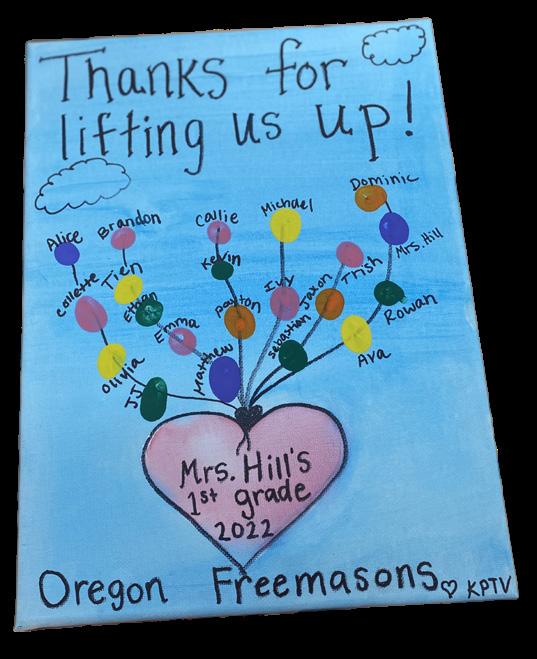 Thanks for
lifting us up!
Dominic
Michael
Callie
Brandon
Alice
Mrs. Hill
Trish
Kevin
Tien
Collette
Ivy
Jaxon
Rowan
Ethan
Payton
Emma
Sebastian
Ava
Olivia
Matthew
JJ
Mrs. Hill's
1st grade
2022
Oregon Freemasons ♡ KPTV